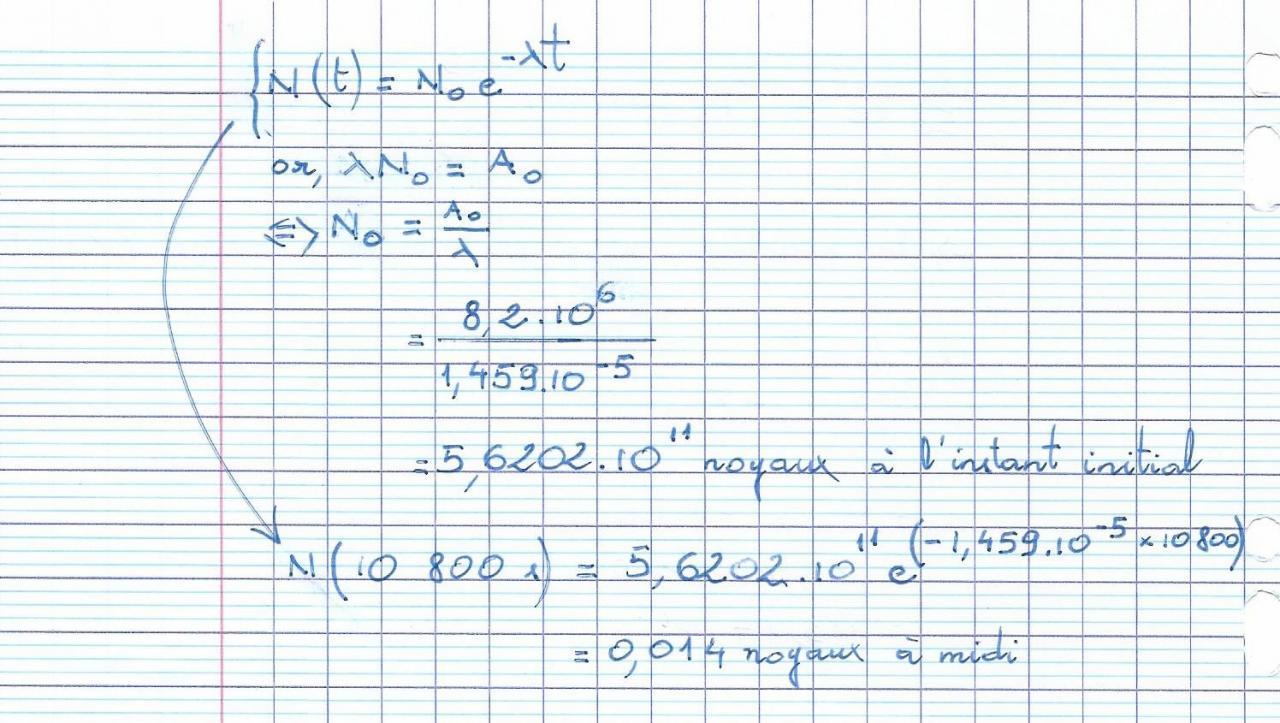 N(t) = N₀ e^(-λt)
or, λN₀ = A₀
⇔ N₀ = A₀/λ
= 8,2.10⁶ / 1,459.10⁻⁵
= 5,6202.10¹¹ noyaux à l'instant initial
N(10 800 s) = 5,6202.10¹¹ e^(-1,459.10⁻⁵ × 10 800)
= 0,014 noyaux à midi